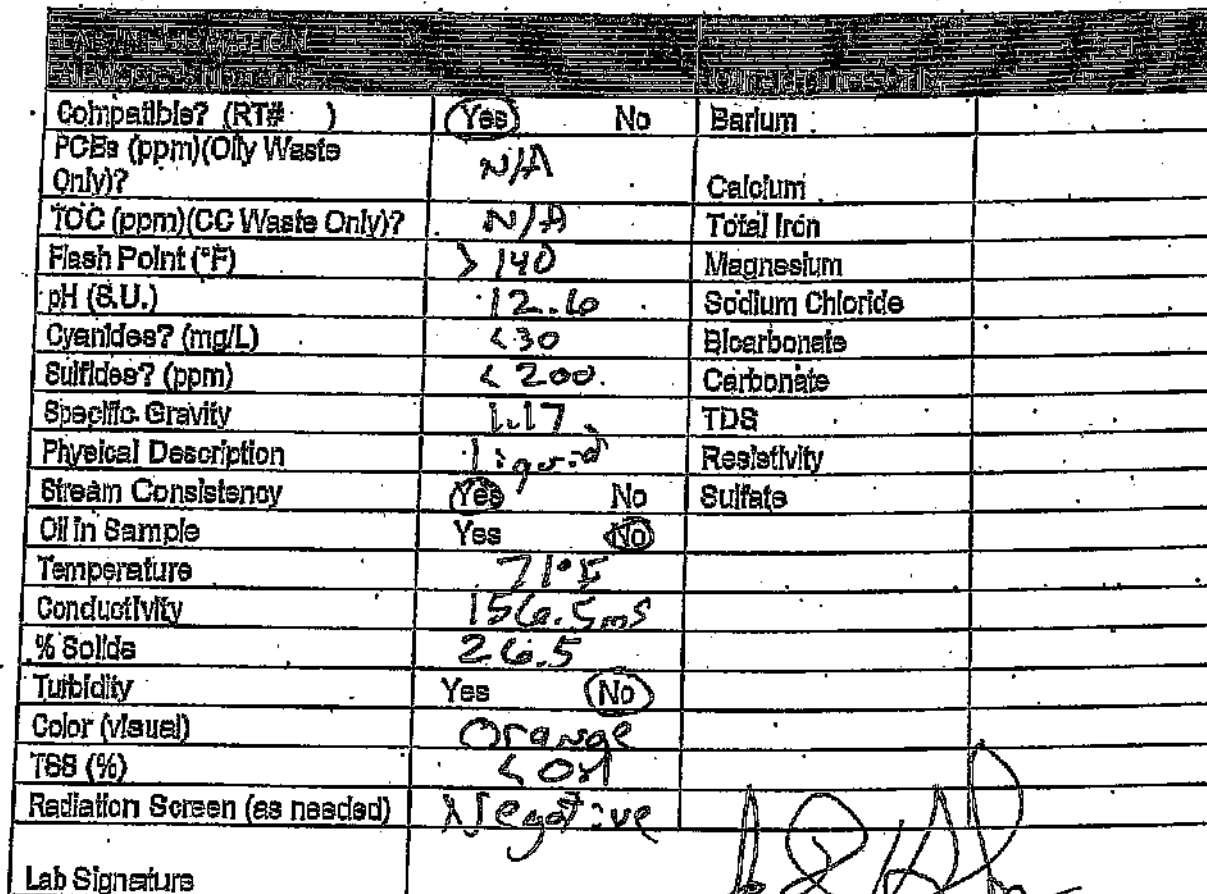 Compatible? (RT# ) Yes No Barium
PCBs (ppm)(Oily Waste
Only)? N/A Calcium
TOC (ppm)(CC Waste Only)? N/A Total Iron
Flash Point (°F) >140 Magnesium
pH (S.U.) 12.6 Sodium Chloride
Cyanides? (mg/L) <30 Bicarbonate
Sulfides? (ppm) <200. Carbonate
Specific Gravity 1.17 TDS
Physical Description liquid Resistivity
Stream Consistency Yes No Sulfate
Oil in Sample Yes No
Temperature 71°F
Conductivity 156.5mS
% Solids 26.5
Turbidity Yes No
Color (visual) Orange
TSS (%)
Radiation Screen (as needed) Negative
Lab Signature